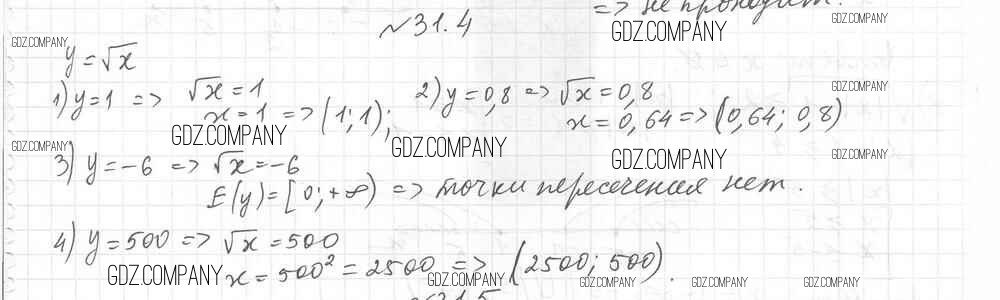 => не проходит.
№31.4
GDZ.COMPANY
GDZ.COMPANY
GDZ.COMPANY
y = √x
1) y = 1 => √x = 1
x = 1 => (1; 1);
2) y = 0,8 => √x = 0,8
x = 0,64 => (0,64; 0,8)
GDZ.COMPANY
GDZ.COMPANY
GDZ.COMPANY
GDZ.COMPANY
GDZ.COMPANY
GDZ.COMPANY
3) y = -6 => √x = -6
E(y) = [0; +∞) => точки пересечения нет.
4) y = 500 => √x = 500
x = 500² = 2500 => (2500; 500).
GDZ.COMPANY
GDZ.COMPANY
GDZ.COMPANY
GDZ.COMPANY
GDZ.COMPANY
№31.5